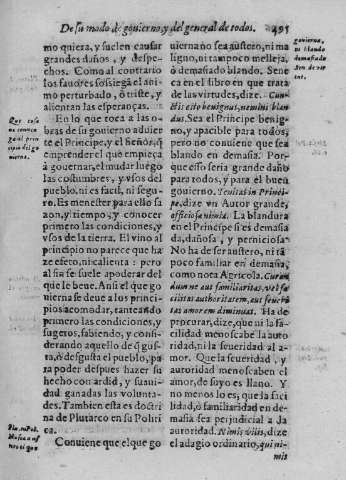 De su modo de gouierno, y del general de todos. 495
mo quiera, y suelen causar
grandes daños, y despe-
chos. Como al contrario
los fauores sossiega el ani
mo perturbado, ò triste, y
alientan las esperanças.
En lo que toca a las o-
bras de su gouierno aduier
te el Principe, y el Señor, q̃
emprender el que empieça
à gouernar, el mudar luego
las costumbres, y vsos del
pueblo, ni es facil, ni segu-
ro. Es menester para ello sa
zon, y tiempo, y conocer
primero las condiciones, y
vsos de la tierra. El vino al
principio no parece que ha
ze efeto, ni calienta : pero
al fin se suele apoderar del
que le beue. Ansi el que go
uierna se deue a los princi-
pios acomodar, tanteando
primero las condiciones, y
sugetos, sabiendo, y consi-
derando aquello de q̃ gus-
ta, ò desgusta el pueblo, pa
ra poder despues hazer su
hecho con ardid, y suaui-
dad ganadas las volunta-
des. Tambien esta es doctri
na de Plutarco en su Politi
ca.
Conuiene que el que go
uierna no sea austero, ni ma
ligno, ni tampoco melleja,
ò demasiado blando. Sene
ca en el libro que trata
de las virtudes, dize. Cun-
ctis esto benignus, nemini blan
dus. Sea el Principe benig-
no, y apacible para todos,
pero no conuiene que sea
blando en demasia. Por-
que esso seria grande daño
para todos, y para el buen
gouierno. Tenitas in Princi-
pe, dize vn Autor grande,
officiosa nimia. La blandura
en el Principe si es demasia
da, dañosa, y perniciosa
No ha de ser austero, ni tã
poco familiar en demasia,
como nota Agricola. Curan
dum ne aut familiaritas, vel fa
cilitas authoritatem, aut seueri-
tas amorem diminuat. Ha de
procurar, dize, que ni la fa-
cilidad menoscabe la auto
ridad, ni la seueridad al a-
mor. Que la seueridad, y
autoridad menoscaben el
amor, de suyo es llano. Y
no menos lo es, que la faci
lidad, ò familiaridad en de-
masia sea perjudicial a la
autoridad. Nimis vilis, dize
el adagio ordinario, qui ni-
mis
gouierna,
ni blando
demasiado